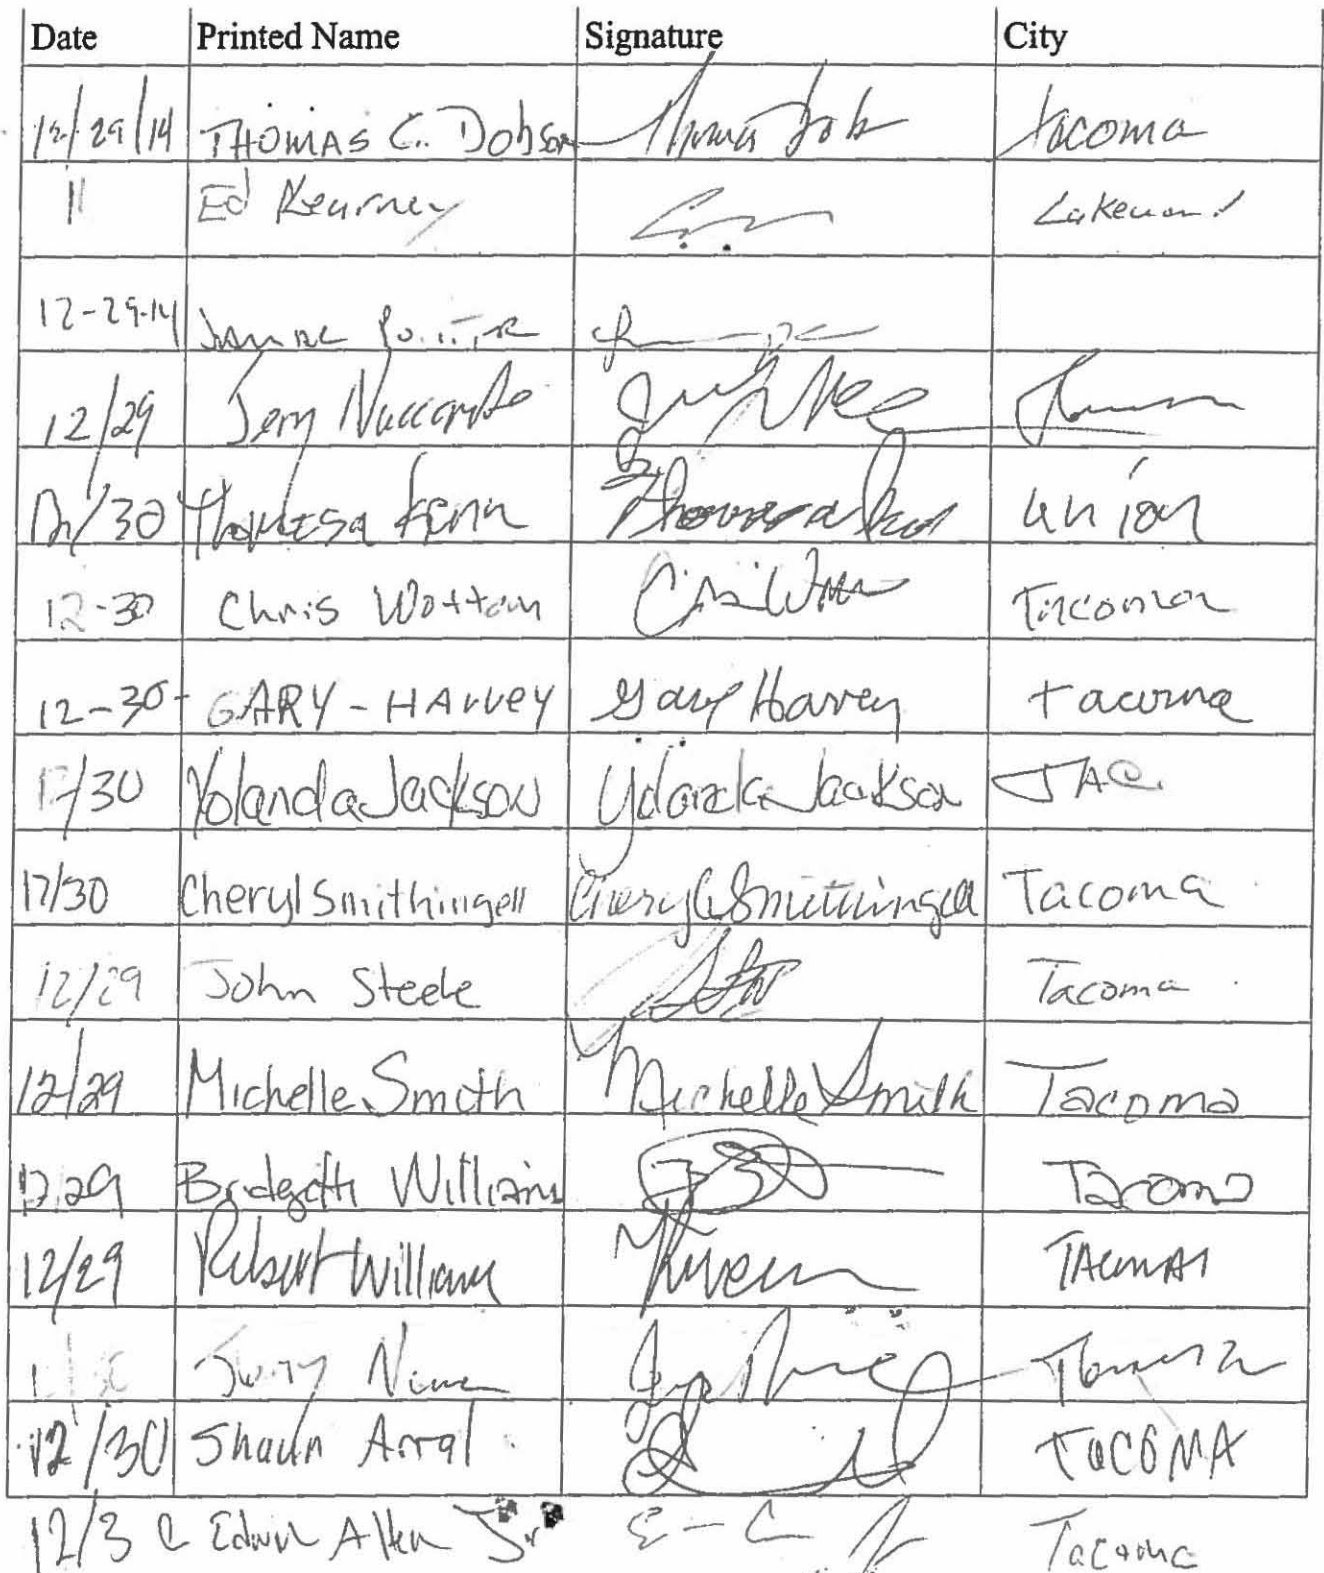 Date Printed Name Signature City
12/29/14 THOMAS C. Dobson Tacoma
11 Ed Kearney Lakewood
12-29-14
12/29 Jerry
12/30 Fenn Union
12-30 Chris Wottan Tacoma
12-30 GARY - HArvey Gary Harvey tacoma
12/30 Yolanda Jackson Yolanda Jackson TAC.
12/30 Cheryl Smithingell Cheryl Smithingell Tacoma
12/29 John Steele Tacoma
12/29 Michelle Smith Michelle Smith Tacoma
12/29 Bridgette Williams Tacoma
12/29 Robert Williams TACOMA
Tacoma
12/30 Shaun Arral TACOMA
12/30 Edwin Allen Jr Tacoma